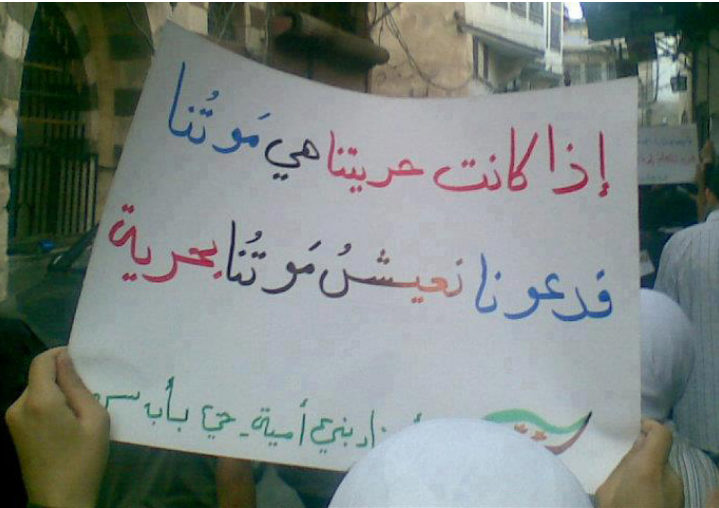 إذا كانت حريتنا هي مَوتُنا
فدعونا نعيشُ مَوتُنا بحرية
بني أمية - حي باب